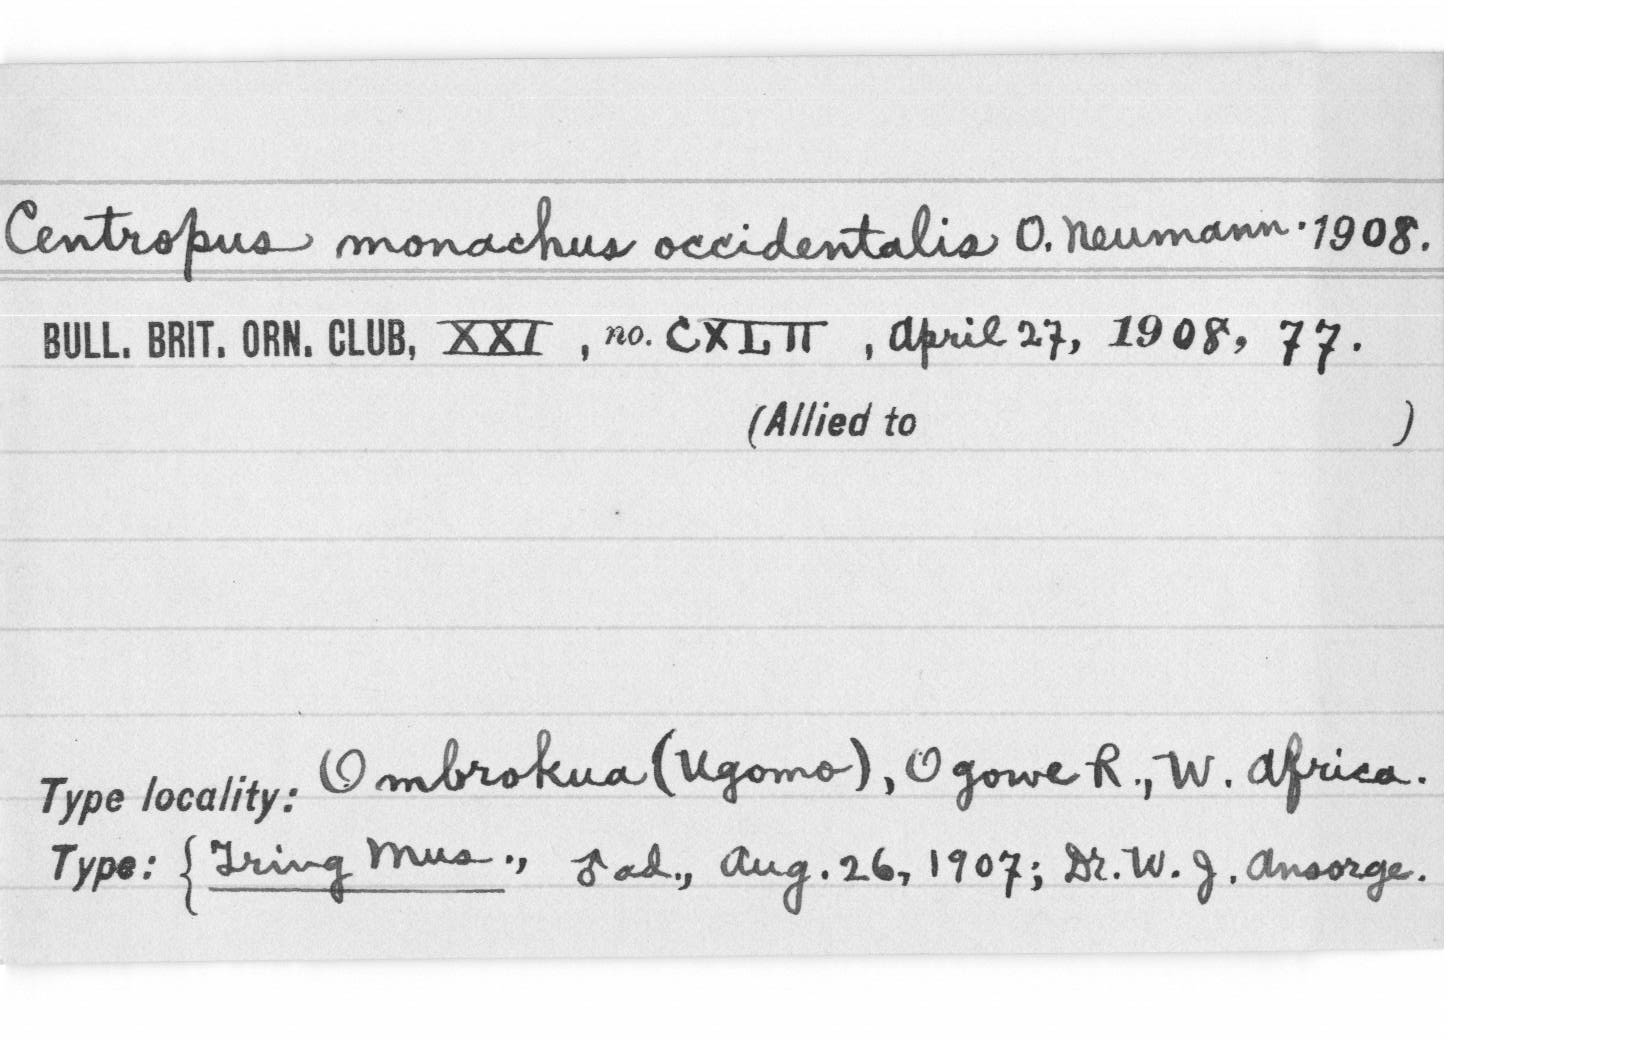 Centropus monachus occidentalis O. Neumann. 1908.
BULL. BRIT. ORN. CLUB, XXI, no. CXLII, April 27, 1908, 77.
(Allied to )
Type locality: Ombrokua (Ugomo), Ogowe R., W. Africa.
Type: { Tring Mus., ♂ ad., Aug. 26, 1907; Dr. W. J. Ansorge.